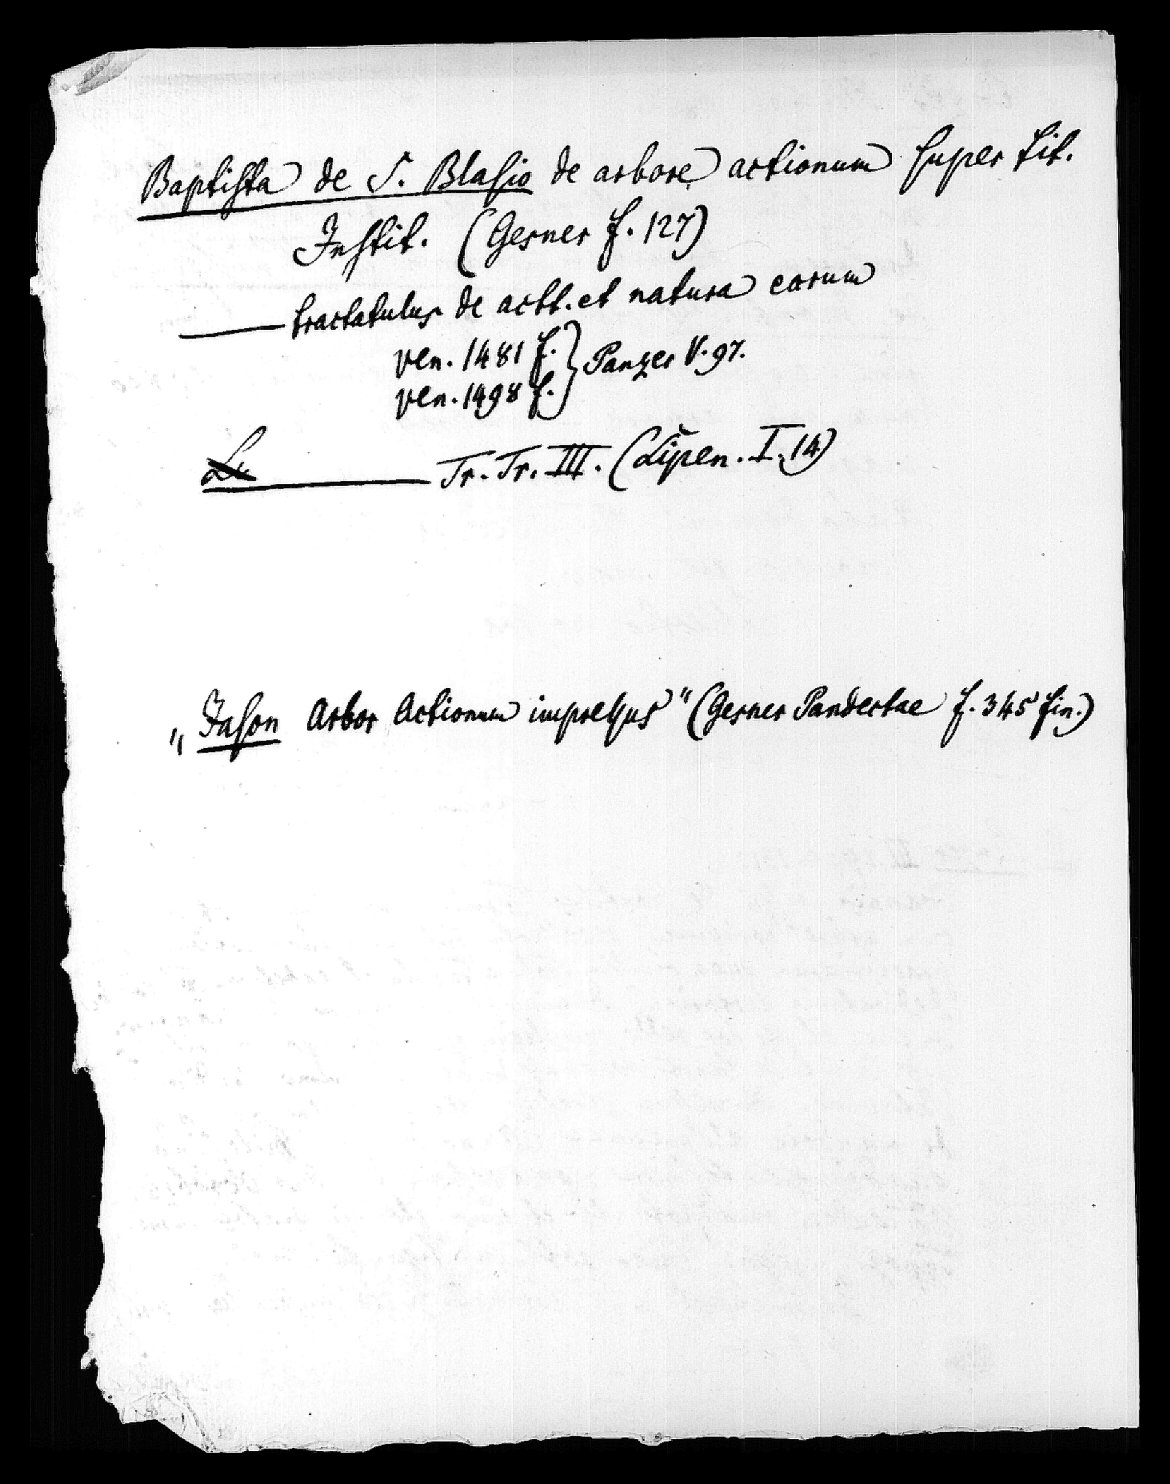 Baptista de S. Blasio de arbore actionum super tit.
Instit. (Gesner f. 127)
——— tractatulus de actt. et natura earum
ven. 1481 f. } Panzer V. 97.
ven. 1498 f.
——— Tr. Tr. III. (Lipen. I. 14)
„Jason Arbor Actionum impressus" (Gesner Pandectae f. 345 fin.)